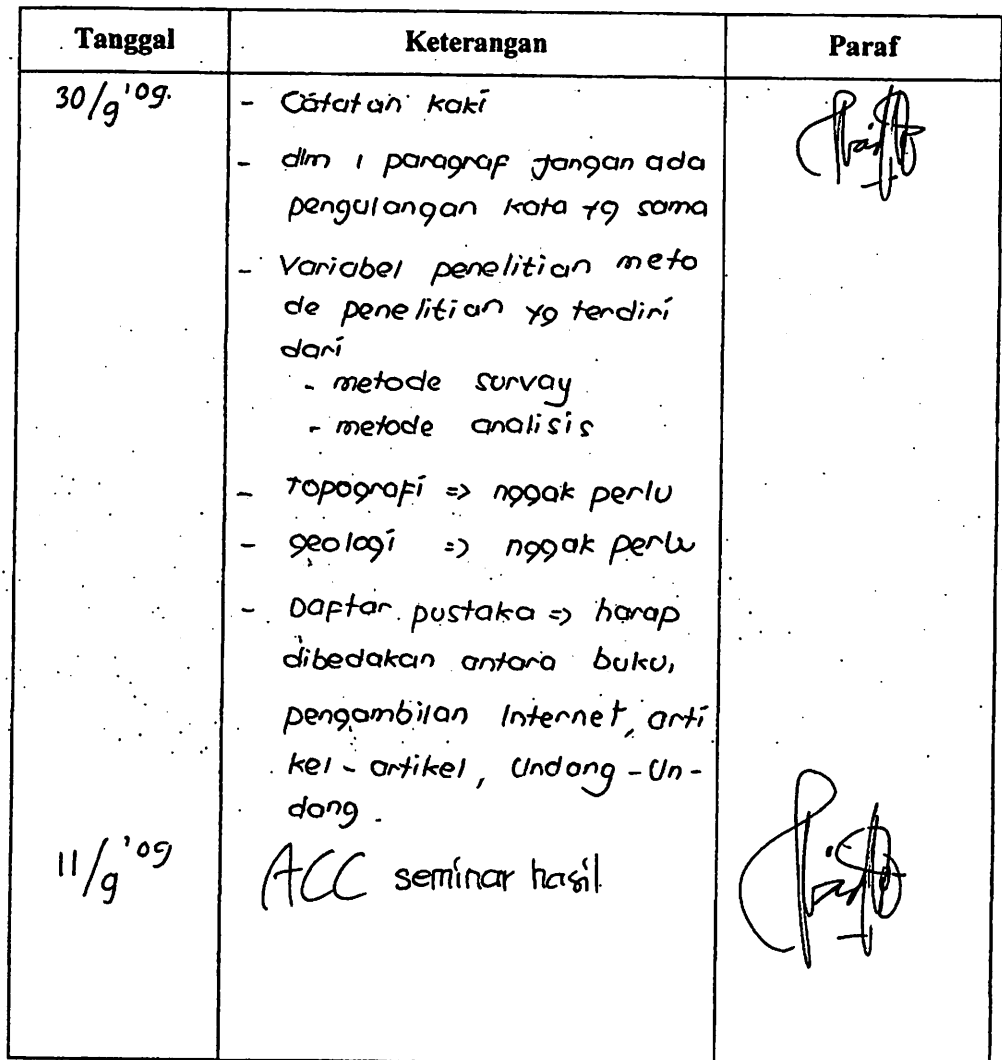 Tanggal Keterangan Paraf
30/9 '09. - Catatan kaki
- dlm 1 paragraf jangan ada
pengulangan kata yg sama
- Variabel penelitian meto
de penelitian yg terdiri
dari
- metode survay
- metode analisis
- Topografi => nggak perlu
- geologi => nggak perlu
- Daftar pustaka => harap
dibedakan antara buku,
pengambilan Internet, arti
kel - artikel, Undang - Un -
dang.
11/9 '09 ACC seminar hasil